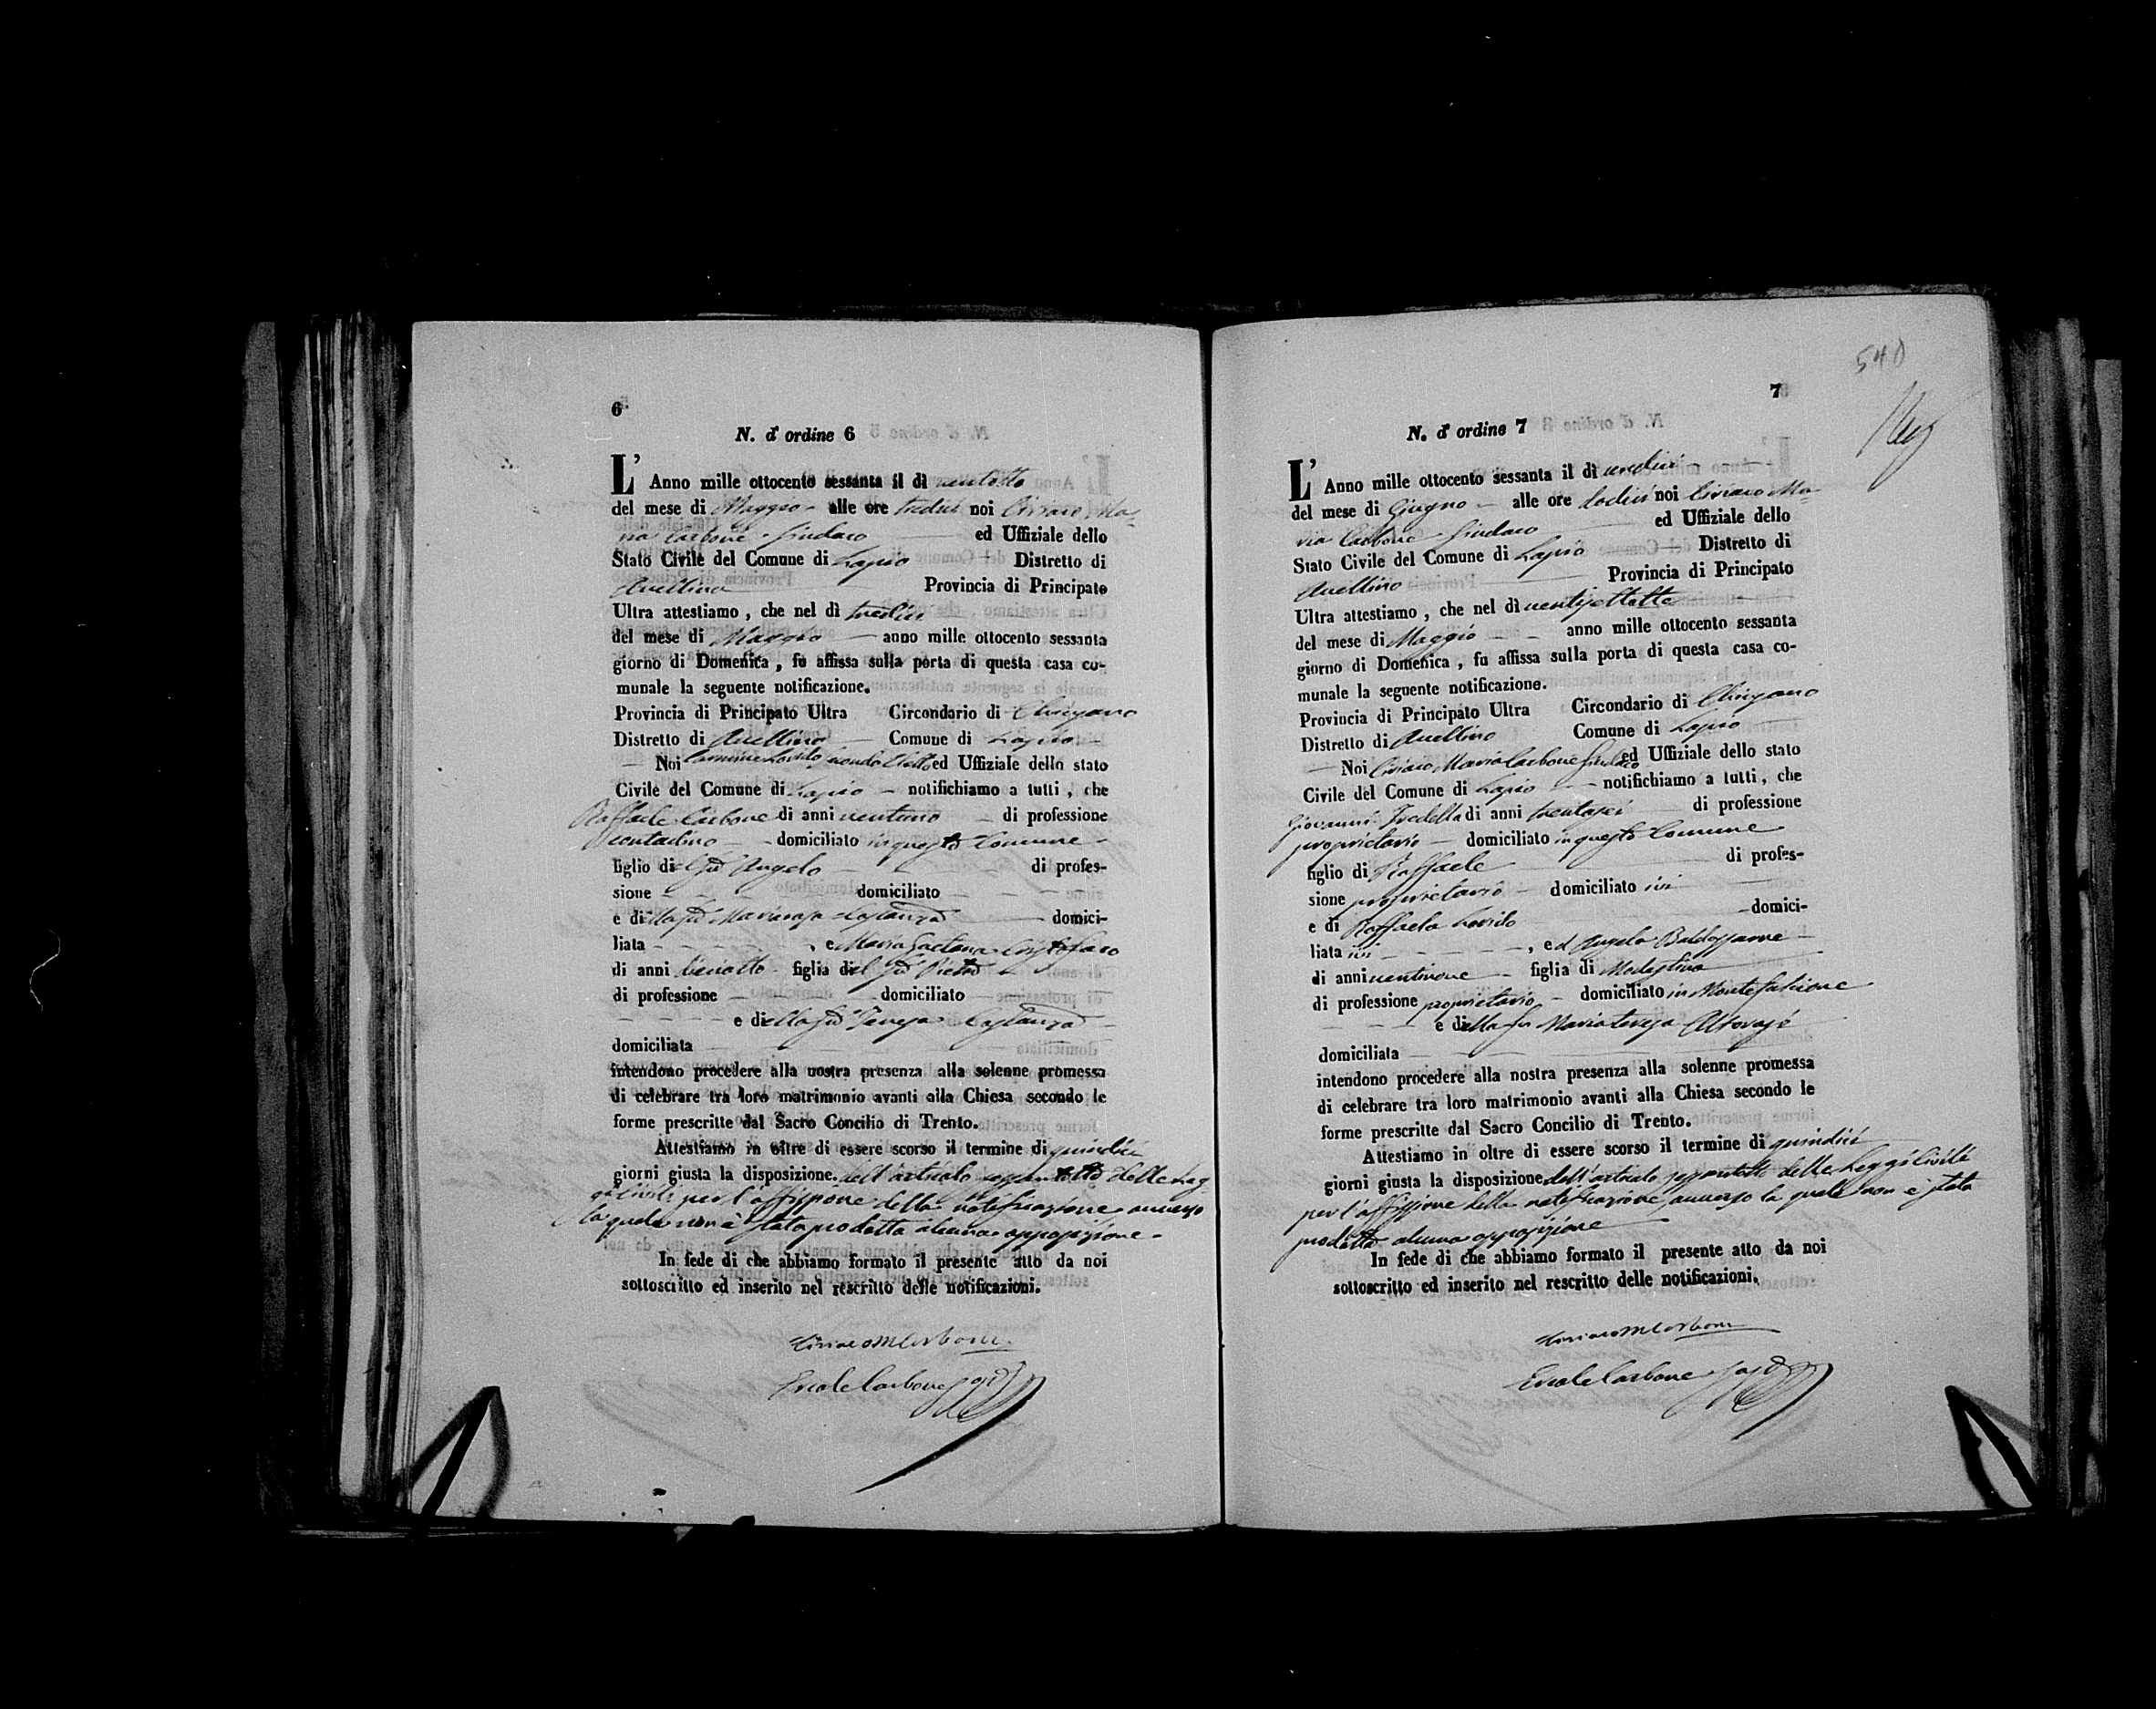 6
N. d' ordine 6
L' Anno mille ottocento sessanta il dì ventotto
del mese di Maggio alle ore tredici noi Ciriaco Ma-
ria Carbone Sindaco ed Uffiziale dello
Stato Civile del Comune di Lapio Distretto di
Avellino Provincia di Principato
Ultra attestiamo, che nel dì tredici
del mese di Maggio anno mille ottocento sessanta
giorno di Domenica, fu affissa sulla porta di questa casa co-
munale la seguente notificazione.
Provincia di Principato Ultra Circondario di Chiusano
Distretto di Avellino Comune di Lapio
Noi Carmine Lovido secondo Eletto ed Uffiziale dello stato
Civile del Comune di Lapio notifichiamo a tutti, che
Raffaele Carbone di anni ventuno di professione
contadino domiciliato in questo Comune
figlio del fu Angelo di profes-
sione domiciliato
e della fu Mariarosa Costanza domici-
liata , e Maria Gaetana Cristofaro
di anni figlia del fu Pietro
di professione domiciliato
e della fu Teresa Costanza
domiciliata
intendono procedere alla nostra presenza alla solenne promessa
di celebrare tra loro matrimonio avanti alla Chiesa secondo le
forme prescritte dal Sacro Concilio di Trento.
Attestiamo in oltre di essere scorso il termine di quindici
giorni giusta la disposizione dell'articolo sessantotto delle Leg-
gi Civili per l'affissione della notificazione avverso
la quale non è stata prodotta alcuna opposizione
In fede di che abbiamo formato il presente atto da noi
sottoscritto ed inserito nel rescritto delle notificazioni.
Ciriaco M Carbone
Ercole Carbone
540
7
N. d' ordine 7
L' Anno mille ottocento sessanta il dì undici
del mese di Giugno alle ore dodici noi Ciriaco Ma-
ria Carbone Sindaco ed Uffiziale dello
Stato Civile del Comune di Lapio Distretto di
Avellino Provincia di Principato
Ultra attestiamo, che nel dì ventisette
del mese di Maggio anno mille ottocento sessanta
giorno di Domenica, fu affissa sulla porta di questa casa co-
munale la seguente notificazione.
Provincia di Principato Ultra Circondario di Chiusano
Distretto di Avellino Comune di Lapio
Noi Ciriaco Maria Carbone Sindaco ed Uffiziale dello stato
Civile del Comune di Lapio notifichiamo a tutti, che
Giovanni Fredella di anni trentasei di professione
proprietario domiciliato in questo Comune
figlio di Raffaele di profes-
sione proprietario domiciliato ivi
e di Raffaela Lovido domici-
liata ivi , ed Angela Baldassarre
di anni ventinove figlia di Modestino
di professione proprietario domiciliato in Montefalcione
e della fu Mariateresa
domiciliata
intendono procedere alla nostra presenza alla solenne promessa
di celebrare tra loro matrimonio avanti alla Chiesa secondo le
forme prescritte dal Sacro Concilio di Trento.
Attestiamo in oltre di essere scorso il termine di quindici
giorni giusta la disposizione dell'articolo sessantotto delle Leggi Civili
per l'affissione della notificazione, avverso la quale non è stata
prodotta alcuna opposizione
In fede di che abbiamo formato il presente atto da noi
sottoscritto ed inserito nel rescritto delle notificazioni.
Ciriaco M Carbone
Ercole Carbone